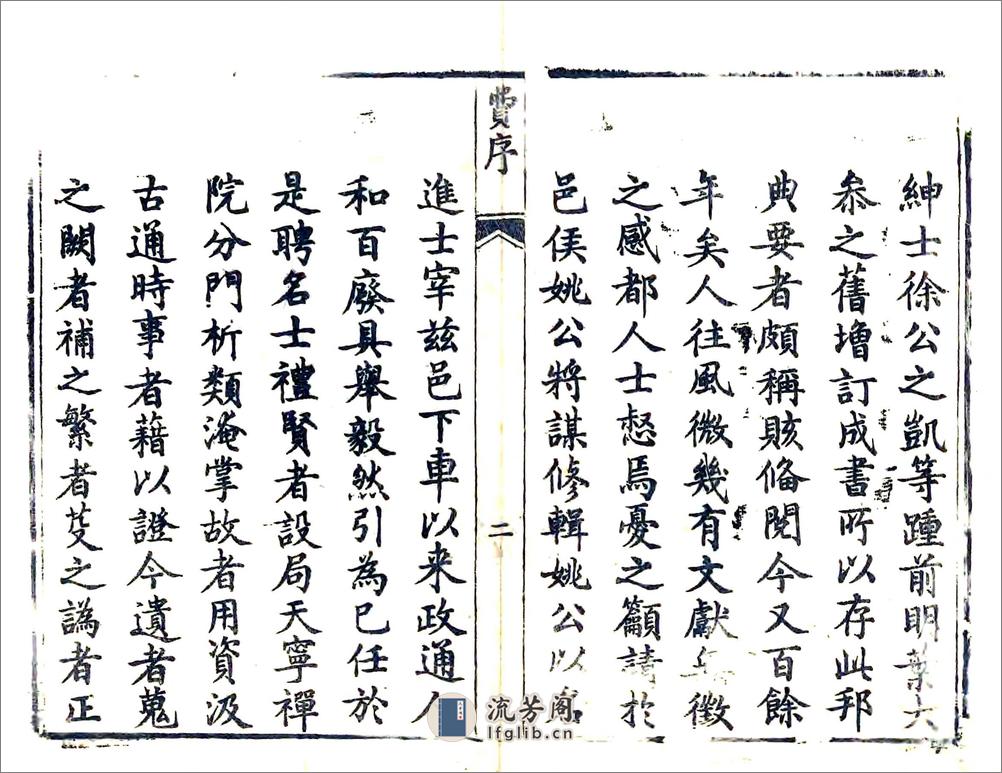 紳士徐公之凱等踵前明葉六
叅之舊增訂成書所以存此邦
典要者頗稱賅俻閱今又百餘
年矣人往風微幾有文獻無徵
之感都人士惄焉憂之籲請於
邑侯姚公將謀修輯姚公以名
費序
二
進士宰兹邑下車以来政通人
和百廢具舉毅然引為已任於
是聘名士禮賢者設局天寧禪
院分門析類淹掌故者用資汲
古通時事者藉以證今遺者蒐
之闕者補之繁者芟之譌者正
流芳阁
lfglib.cn